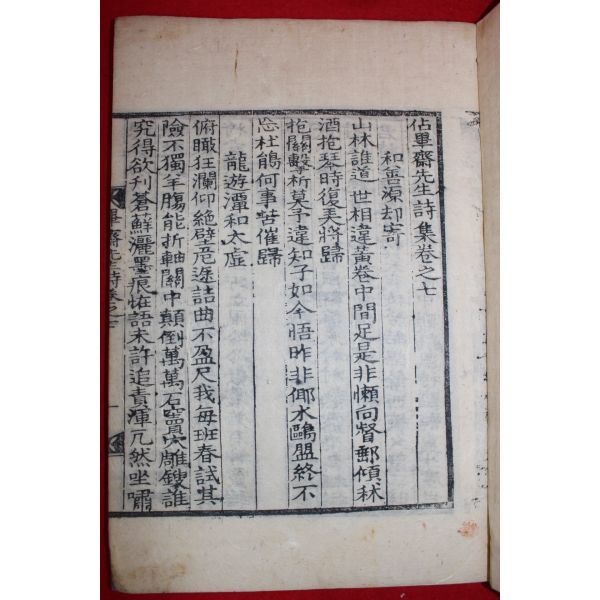 佔畢齋先生詩集卷之七
和善源却寄
山林誰道世相違黃卷中間足是非懶向督郵傾秫
酒抱琴時復美將歸
抱關擊柝莫予違知子如今悟昨非鄊水鷗盟終不
忘杜鵑何事苦催歸
龍遊潭和太虛
俯瞰狂瀾仰絕壁危途詰曲不盈尺我每班春試其
險不獨羊膓能折軸關中顛倒萬萬石竇穴雕鎪誰
究得欲刋蒼蘚灑墨痕恠語未許追責渾兀然坐嘯
畢齋先生詩集卷之七